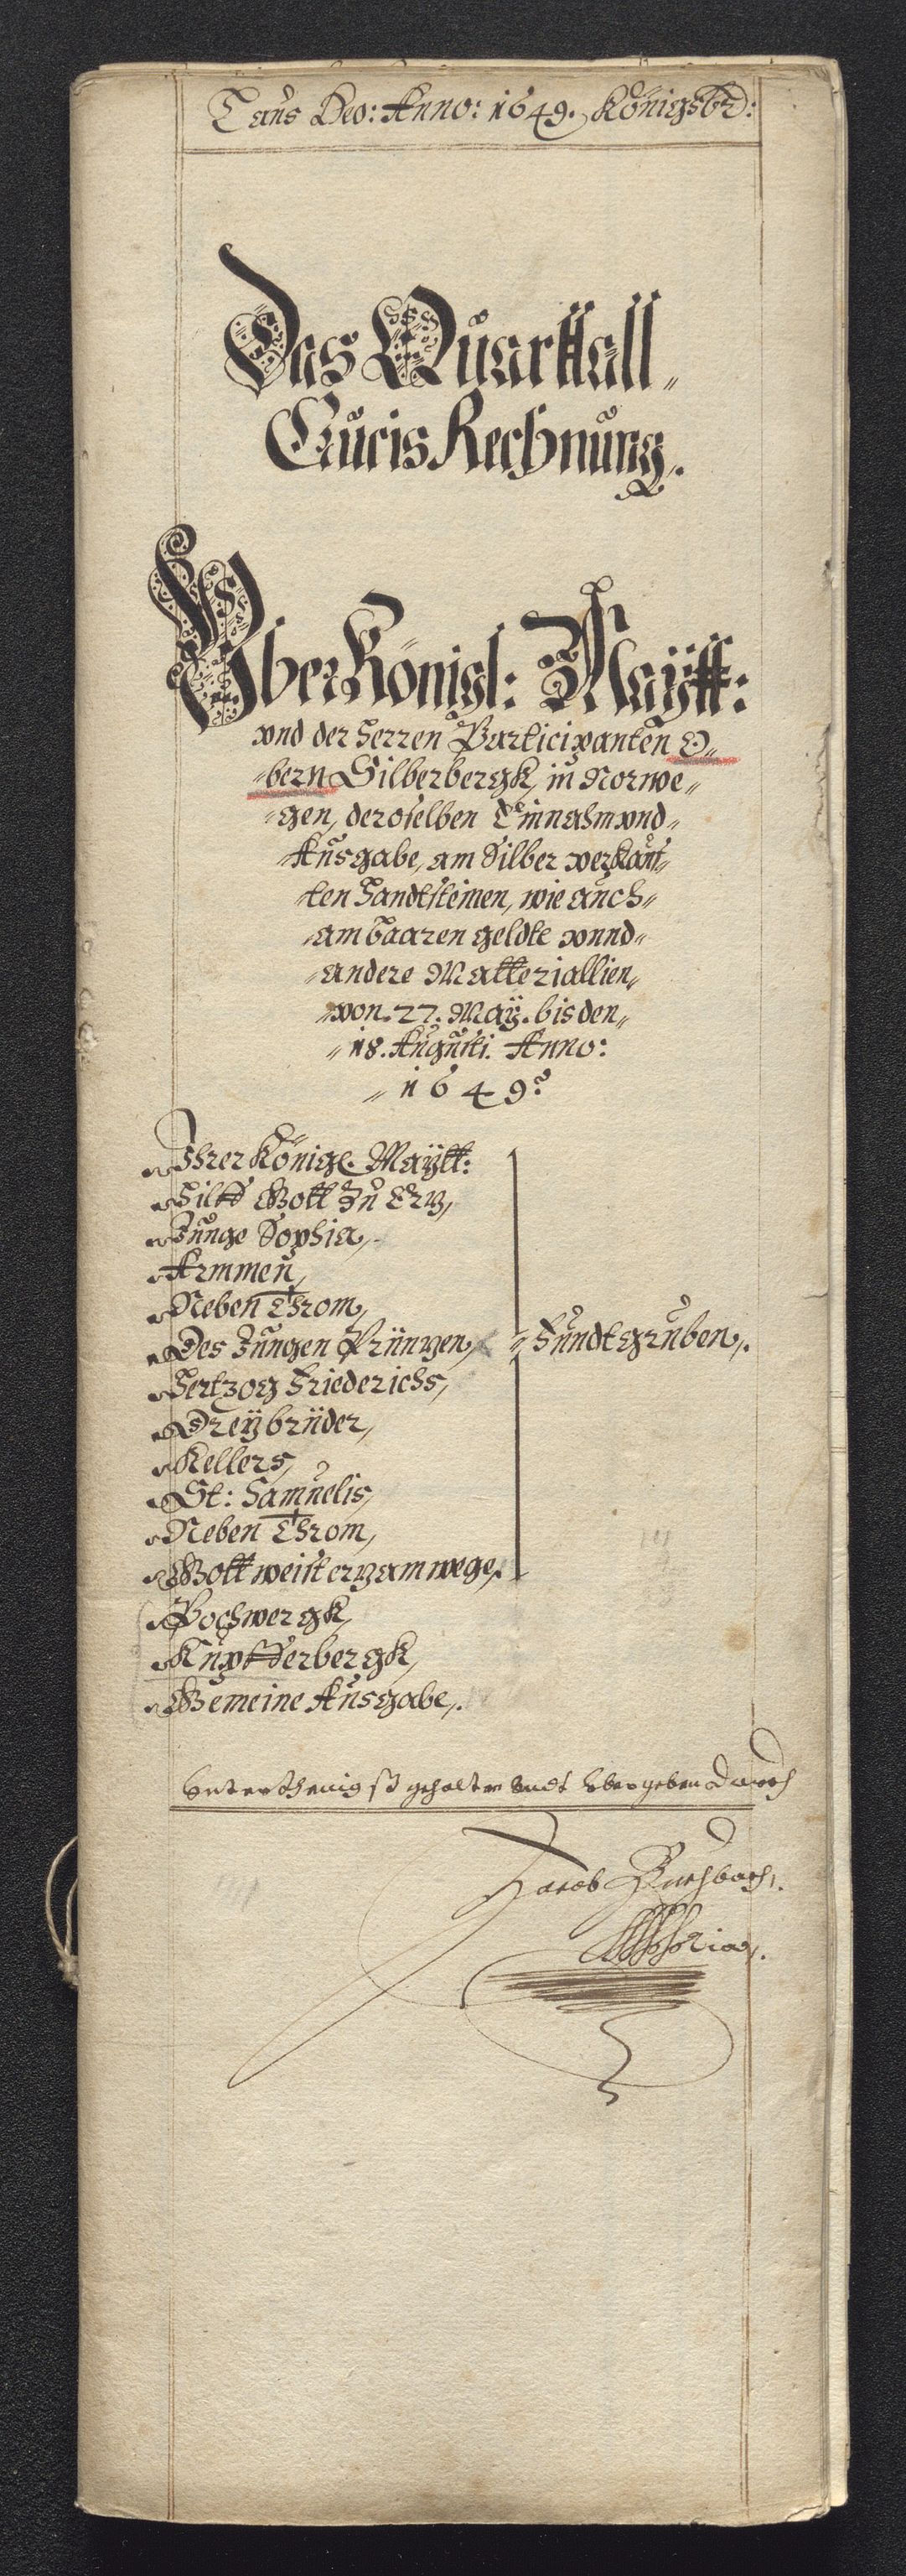 Laus Deo: Anno: 1649. Königsb:
Das Quarttall
Crucis Rechnung.
Vber Königl: Maÿtt:
vnd der Herren Participanten O=
=bern Silberbergk, in Norwe=
=gen, deroselben Einnahm vnd=
Ausgabe, am Silber verkauf=
=ten Handtsteinen, wie auch=
=am baaren geldte vnnd=
=andere Matteriallien,
=von. 27. Maÿ. bis den=
=18. Augusti. Anno:
=1649.
Ihrer Königl. Maÿtt:
Hilff Gott Zu Ertz,
Junge Sophia,
Armmen,
Neben Throm,
Des Jungen Printzen,
Fundtgruben.
Hertzog Friederichs,
Dreÿ brüder,
Kellers,
St: Samuelis,
Neben Throm,
Gott weist ertz am wege,
Pochwergk,
Kupfferbergk,
Gemeine Ausgabe.
Unterthenigst gehalten undt übergeben durch
Jacob